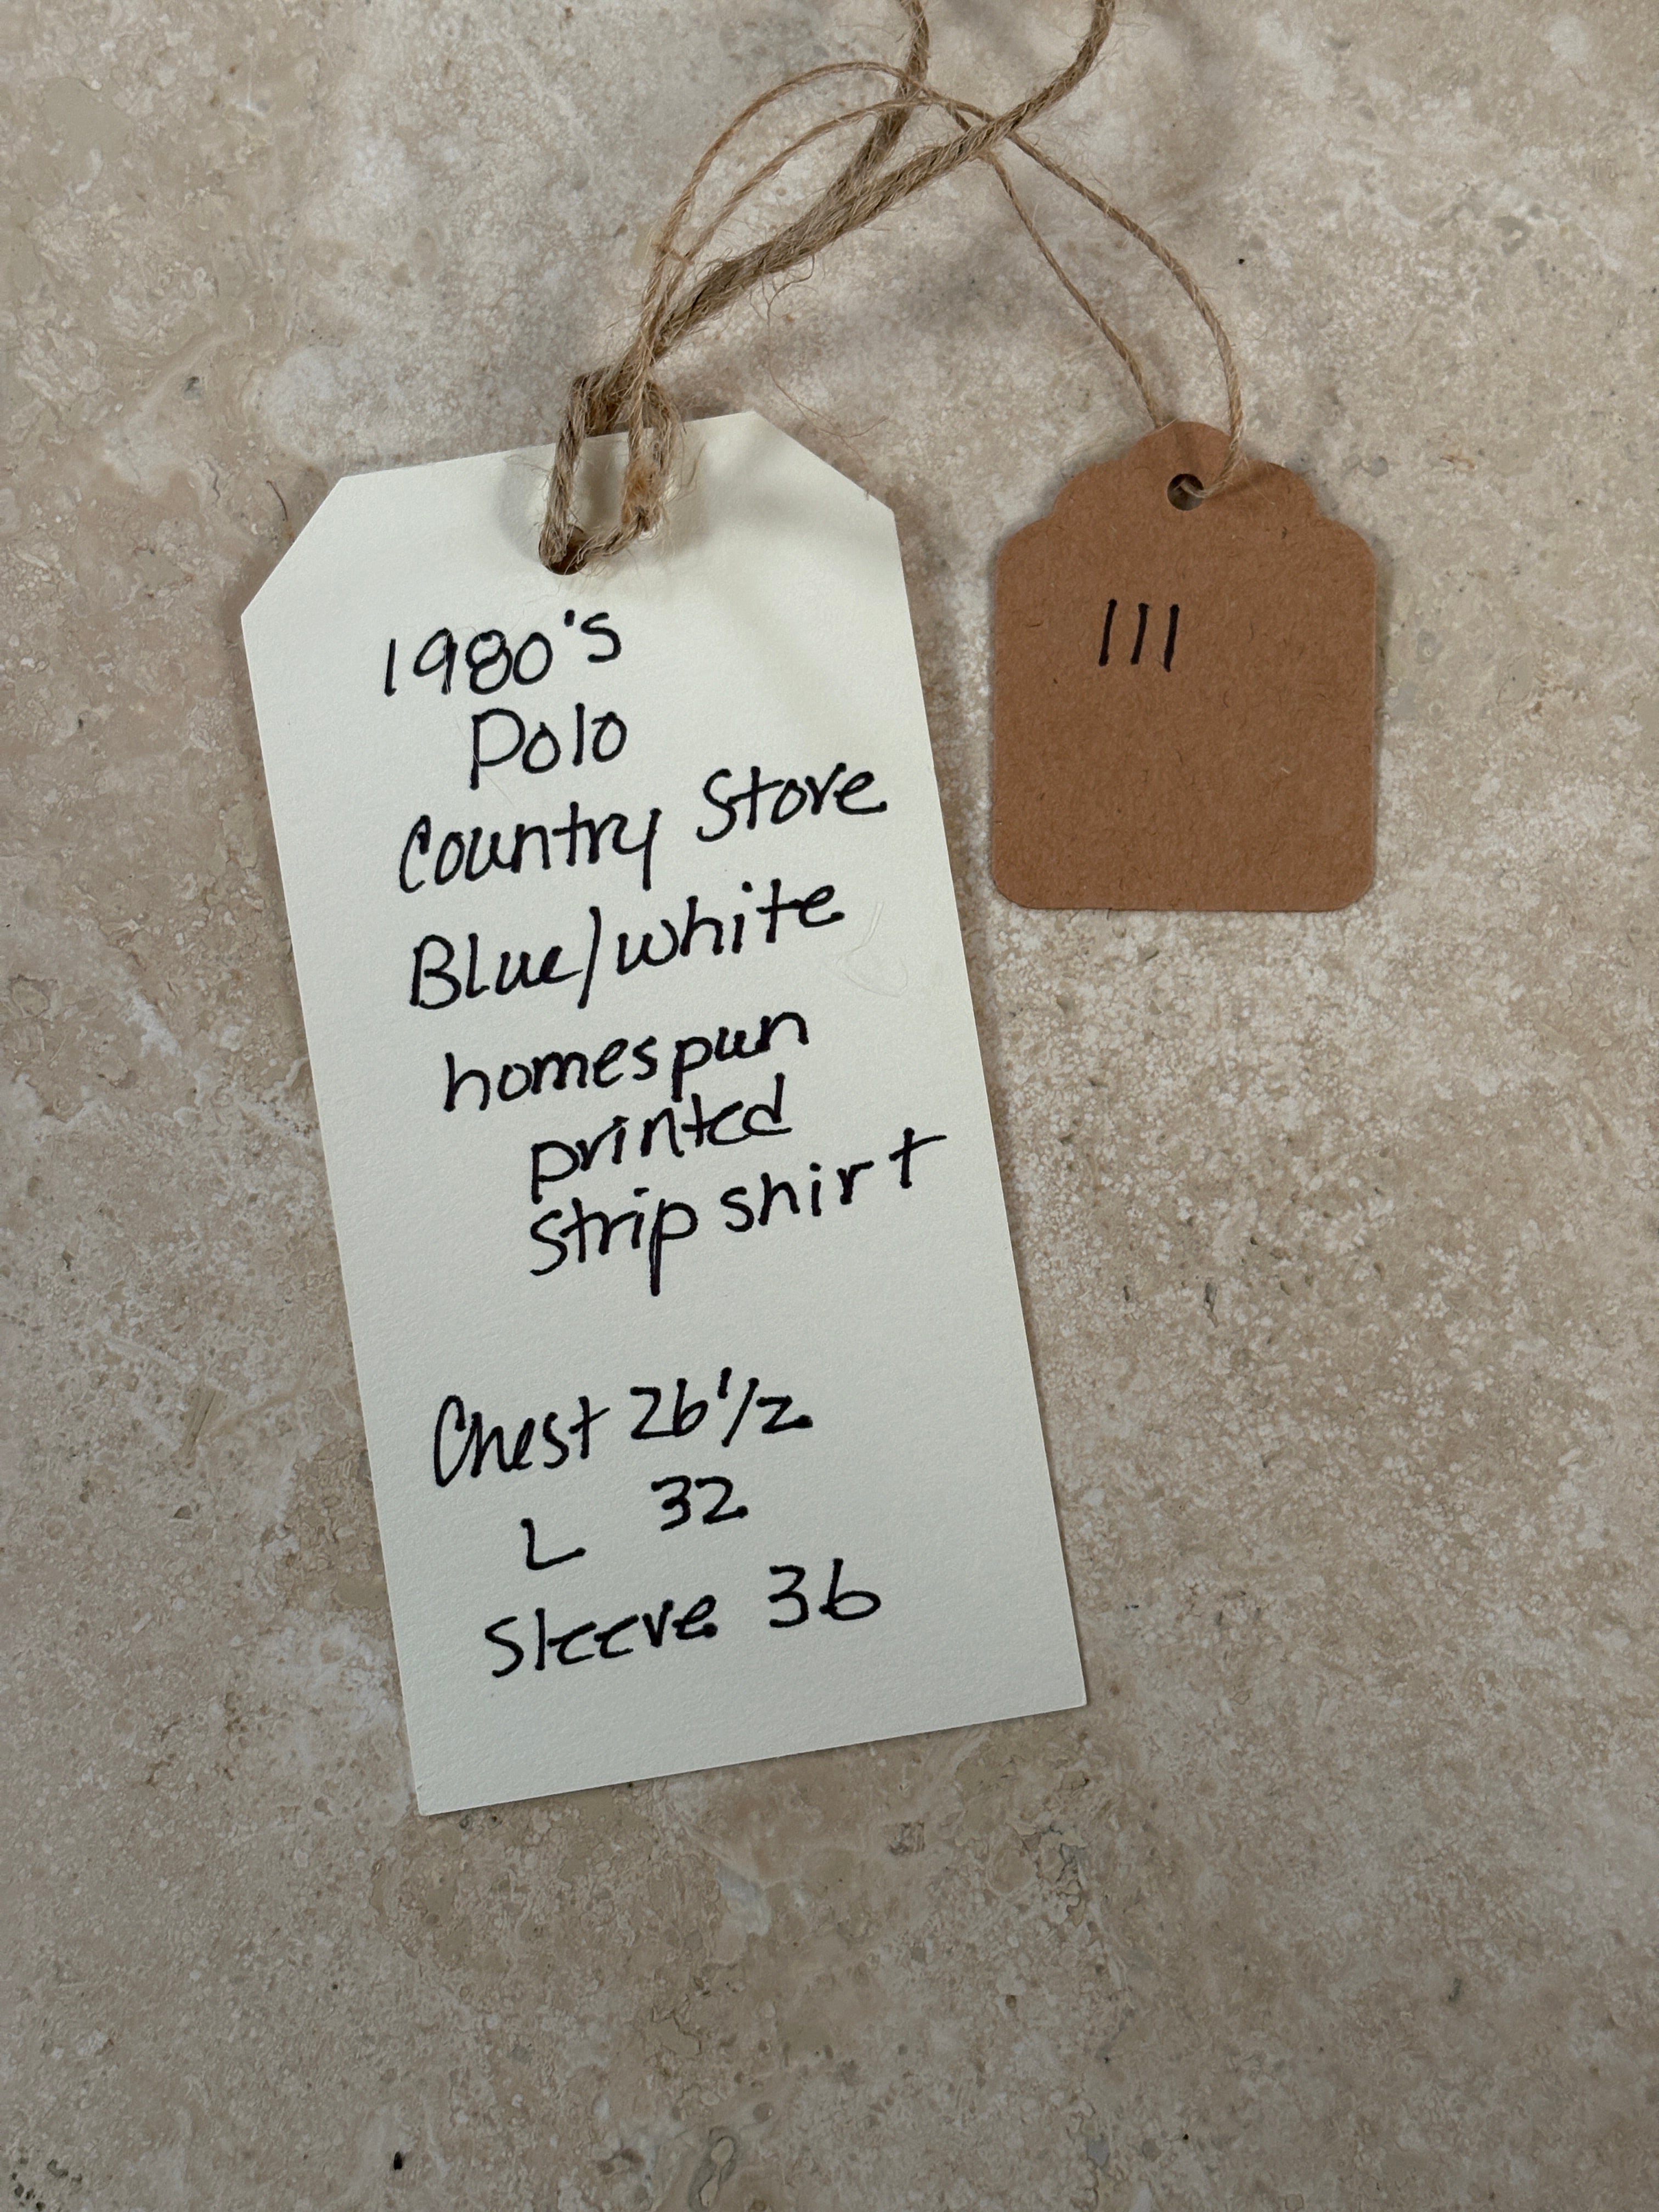 1980's
Polo
Country Store
Blue/white
homespun
printed
Strip shirt
Chest 26 1/2
L 32
Sleeve 36
111